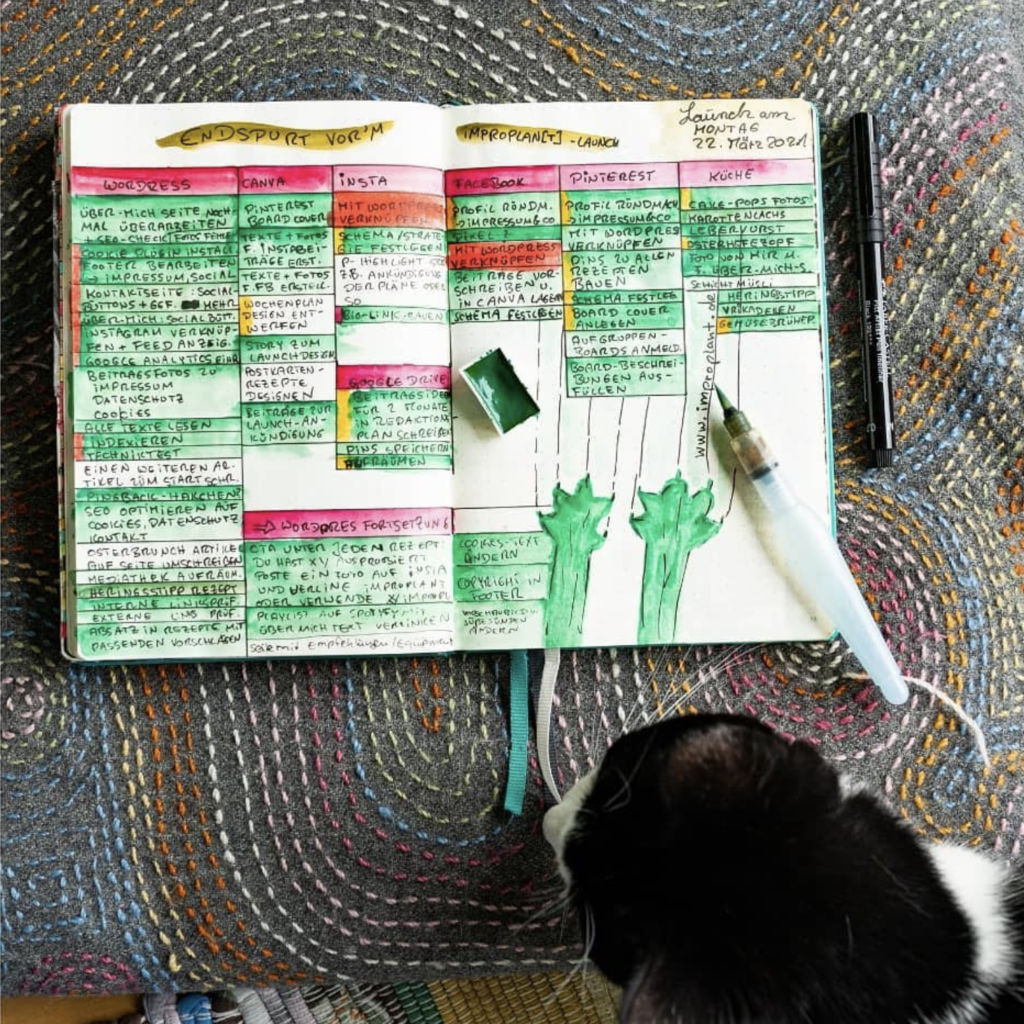 ENDSPURT VOR'M IMPROPLAN[T] -LAUNCH
Launch am
MONTAG
22. März 2021
WORDRESS
ÜBER-MICH SEITE NOCH-
MAL ÜBERARBEITEN
+ SEO-CHECK/FOTOS FEHLEN
COOKIE PLUGIN INSTALL
FOOTER BEARBEITEN
→ IMPRESSUM, SOCIAL
KONTAKTSEITE: SOCIAL-
BUTTONS + GGF. MEHR
ÜBER-MICH: SOCIAL BUTT.
INSTAGRAM VERKNÜP-
FEN + FEED ANZEIG.
GOOGLE ANALYTICS EINR
BEITRAGSFOTOS ZU
IMPRESSUM
DATENSCHUTZ
COOKIES
ALLE TEXTE LESEN
INDEXIEREN
TECHNIKTEST
EINEN WEITEREN AR-
TIKEL ZUM START SCHR.
PINGBACK-HÄKCHEN
SEO OPTIMIEREN AUF
COOKIES, DATENSCHUTZ
KONTAKT
OSTERBRUNCH ARTIKEL
AUF SEITE UMSCHREIBEN
MEDIATHEK AUFRÄUM.
HERINGSSTIPP REZEPT
INTERNE LINKS PRÜF.
EXTERNE LINS PRÜF.
ABSATZ IN REZEPTE MIT
PASSENDEN VORSCHLÄGEN
CANVA
PINTEREST
BOARD COVER
TEXTE + FOTOS
F. INSTABEI-
TRÄGE ERST.
TEXTE + FOTOS
F. FB ERSTELL.
WOCHENPLAN
DESIGN ENT-
WERFEN
STORY ZUM
LAUNCH DESIGN
POSTKARTEN-
REZEPTE
DESIGNEN
BEITRÄGE ZUR
LAUNCH-AN-
KÜNDIGUNG
INSTA
MIT WORDPRESS
VERKNÜPFEN
SCHEMA/STRATE
GIE FESTLEGEN
P-HIGHLIGHT
Z.B. ANKÜNDIGUNG
DER PLÄNE ODER
SO
BIO-LINK-BAUEN
GOOGLE DRIVE
BEITRAGSIDEEN
FÜR 2 MONATE
IN REDAKTIONS
PLAN SCHREIBEN
PINS SPEICHERN
AUFRÄUMEN
⇒ WORDPRES FORTSETZUNG
CTA UNTER JEDEN REZEPT:
DU HAST XY AUSPROBIERT
POSTE EIN FOTO AUF INSTA
UND VERLINE IMPROPLANT
ODER VERWENDE #IMPROPL
PLAYLIST AUF SPOTIFY MIT
ÜBER MICH TEXT VERLINKEN
Seite mit Empfehlungen/Equipment
FACEBOOK
PROFIL RUNDM.
→ IMPRESSUM & CO
MIT WORDPRESS
VERKNÜPFEN
BEITRÄGE VOR-
SCHREIBEN U.
IN CANVA LAGERN
SCHEMA FESTLEGEN
COOKIES-TEXT
ÄNDERN
COPYRIGHT IN
FOOTER
ÄNDERN
PINTEREST
PROFIL RUNDM.
→ IMPRESSUM & CO
MIT WORDPRES
VERKNÜPFEN
PINS ZU ALLEN
REZEPTEN
BAUEN
SCHEMA FESTLEG
BOARD COVER
ANLEGEN
AUF GRUPPEN-
BOARDS ANMELD.
BOARD-BESCHREI-
BUNGEN AUS-
FÜLLEN
KÜCHE
CAKE-POPS FOTOS
KAROTTENLACHS
LEBERVURST
OSTERHEFEZOPF
FOTO VON MIR M.
F. ÜBER-MICH-S.
SCHICHTMÜSLI
HERINGSSTIPP
VRIKADELEN
GEMÜSEBRÜHE
www.improplant.de